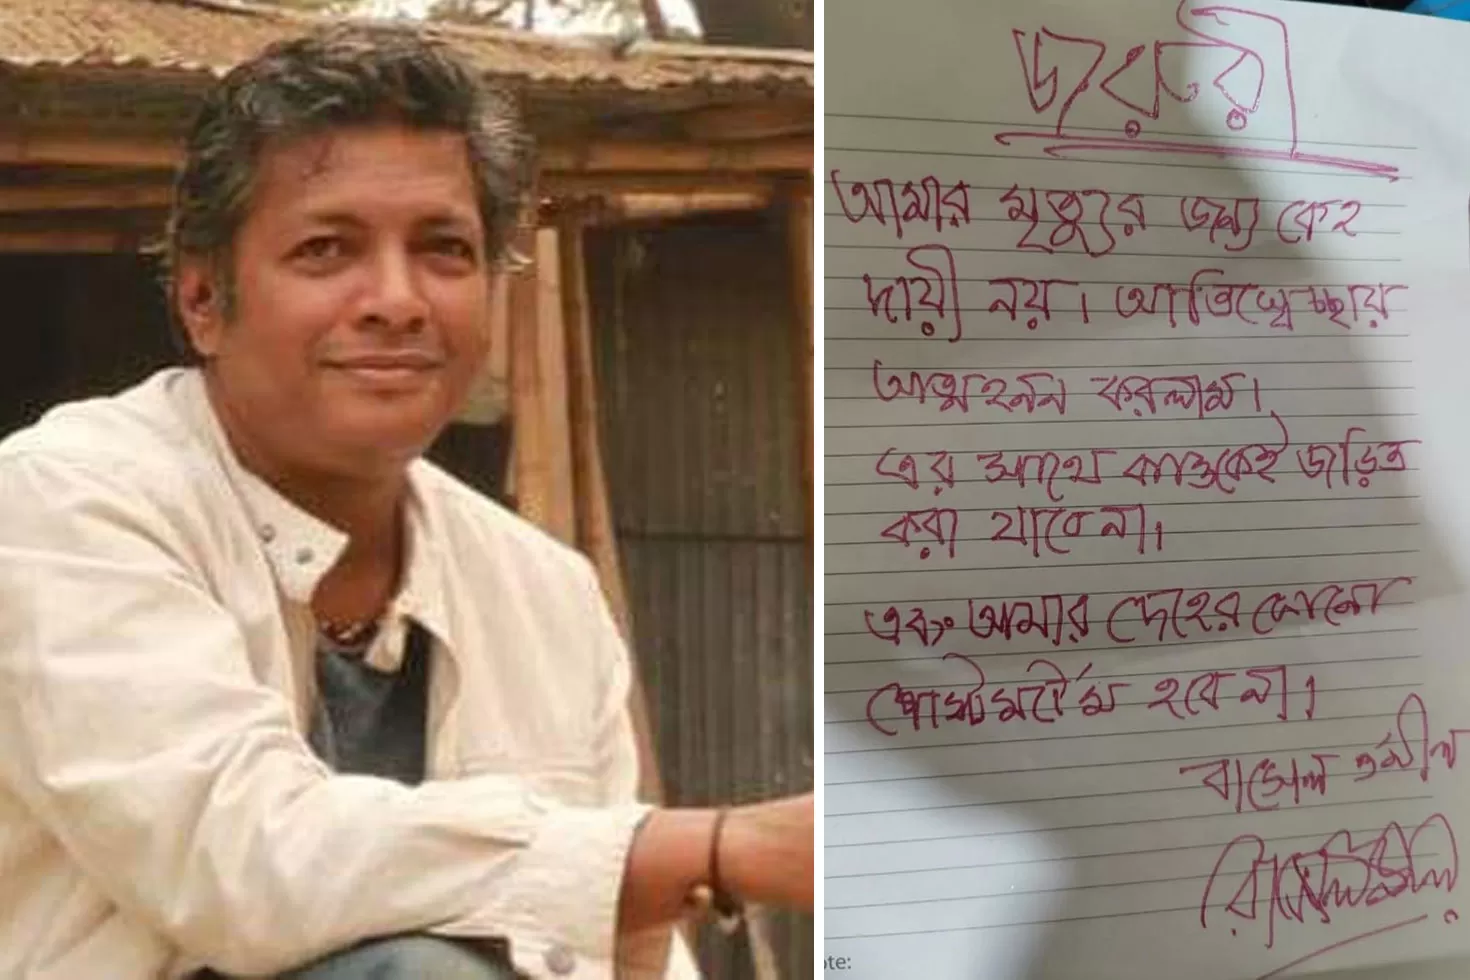 জরুরী
আমার মৃত্যুর জন্য কেহ
দায়ী নয়। আতিস্বেচ্ছায়
আত্মহনন করলাম।
এর সাথে কাউকেই জড়িত
করা যাবে না।
এবং আমার দেহের কোনো
পোস্টমর্টেম হবে না।
রাসেল
ote: